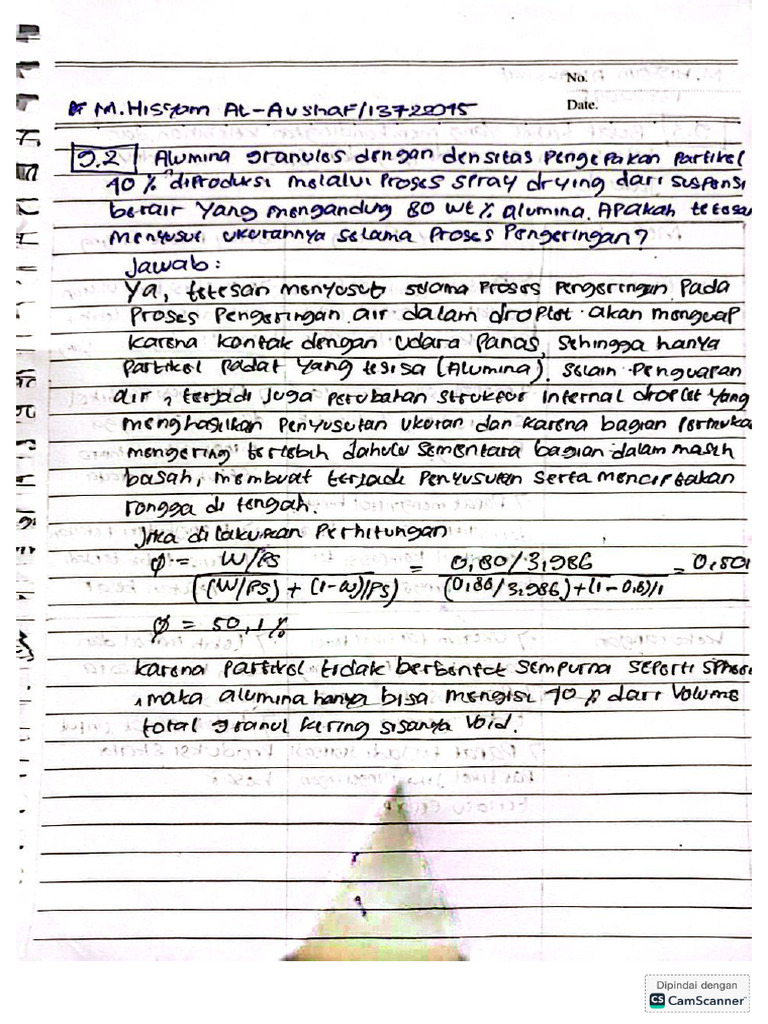 No.
M. HISSYAM AL-AUSHAF/13722015
Date.
9.2 Alumina granules dengan densitas pengepakan partikel
40 % diproduksi melalui proses spray drying dari suspensi
berair yang mengandung 80 wt % alumina. Apakah tetesan
menyusut ukurannya selama proses pengeringan?
Jawab:
Ya, tetesan menyusut selama proses pengeringan. Pada
proses pengeringan air dalam droplet akan menguap
karena kontak dengan udara panas, sehingga hanya
partikel padat yang tesisa (Alumina). Selain penguapan
air, terjadi juga perubahan struktur internal droplet yang
menghasilkan penyusutan ukuran dan karena bagian permuka
mengering terlebih dahulu sementara bagian dalam masih
basah, membuat terjadi penyusutan serta menciptakan
rongga di tengah.
Jika dilakukan perhitungan
φ = W/ρs / ((W/ρs) + (1-w)/ρs) = 0,80/3,986 / (0,80/3,986)+(1-0,8)/1 = 0,501
φ = 50,1 %
karena partikel tidak berbentuk sempurna seperti sphere
, maka alumina hanya bisa mengisi 40 % dari volume
total granul kering sisanya void.
Dipindai dengan
CS CamScanner